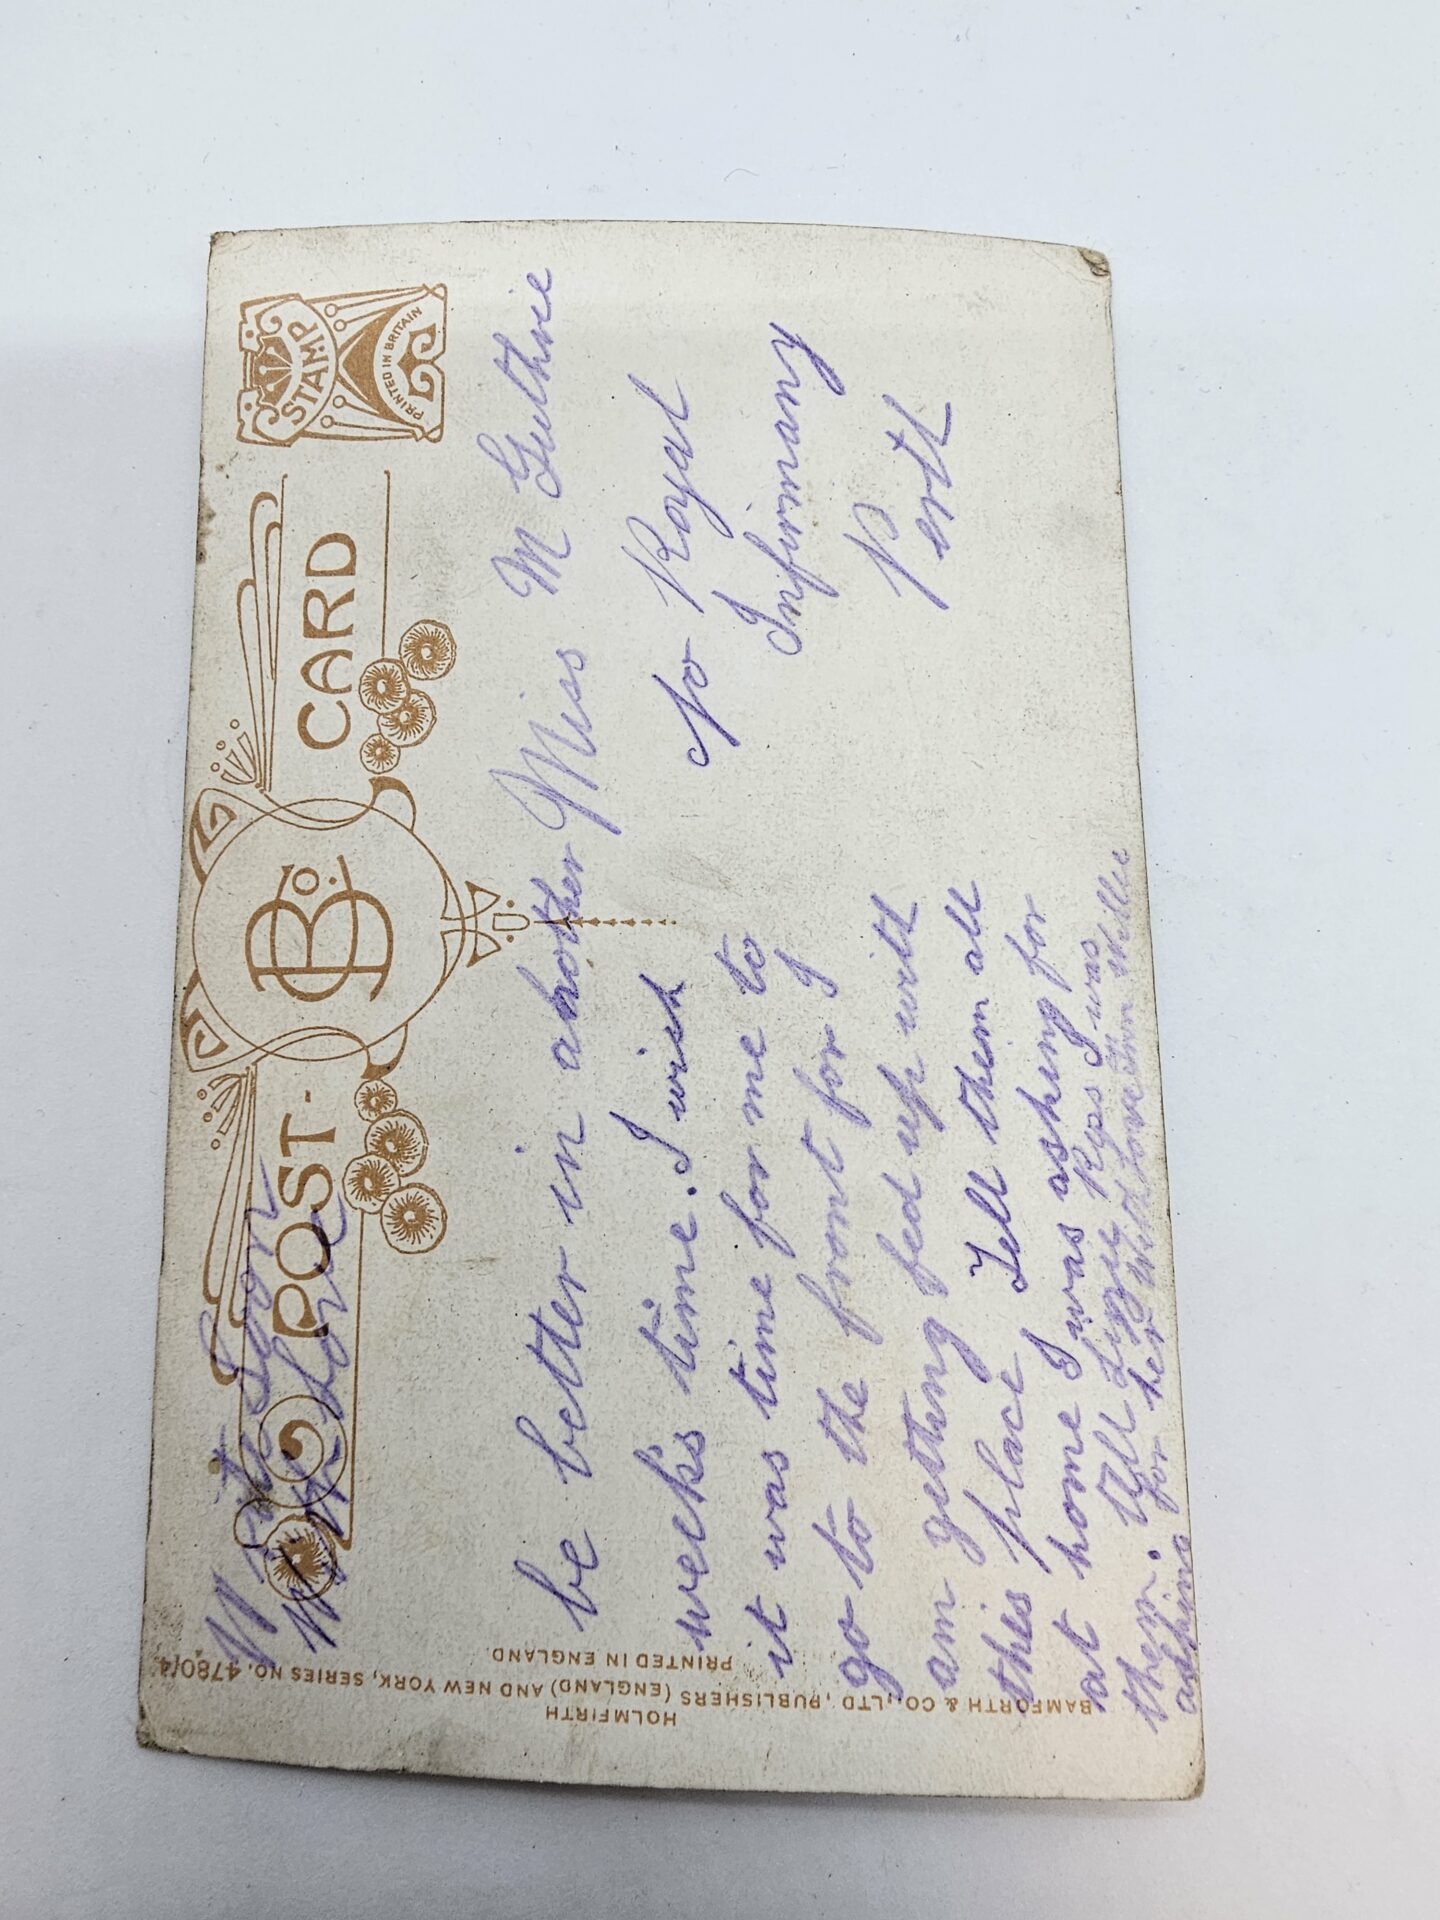 Write Soon
With Love
POST CARD
B & Co.
STAMP
PRINTED IN BRITAIN
be better in another
week's time. I wish
it was time for me to
go to the front for I
am getting fed up with
this place Tell them all
at home I was asking for
them. Tell Lizzie Kyss I was
asking for her With love from Willie
Miss M Guthrie
No Royal
Infirmany
Perth
BAMFORTH & CO., LTD., PUBLISHERS (ENGLAND) AND NEW YORK, SERIES NO. 4780/4.
HOLMFIRTH
PRINTED IN ENGLAND.